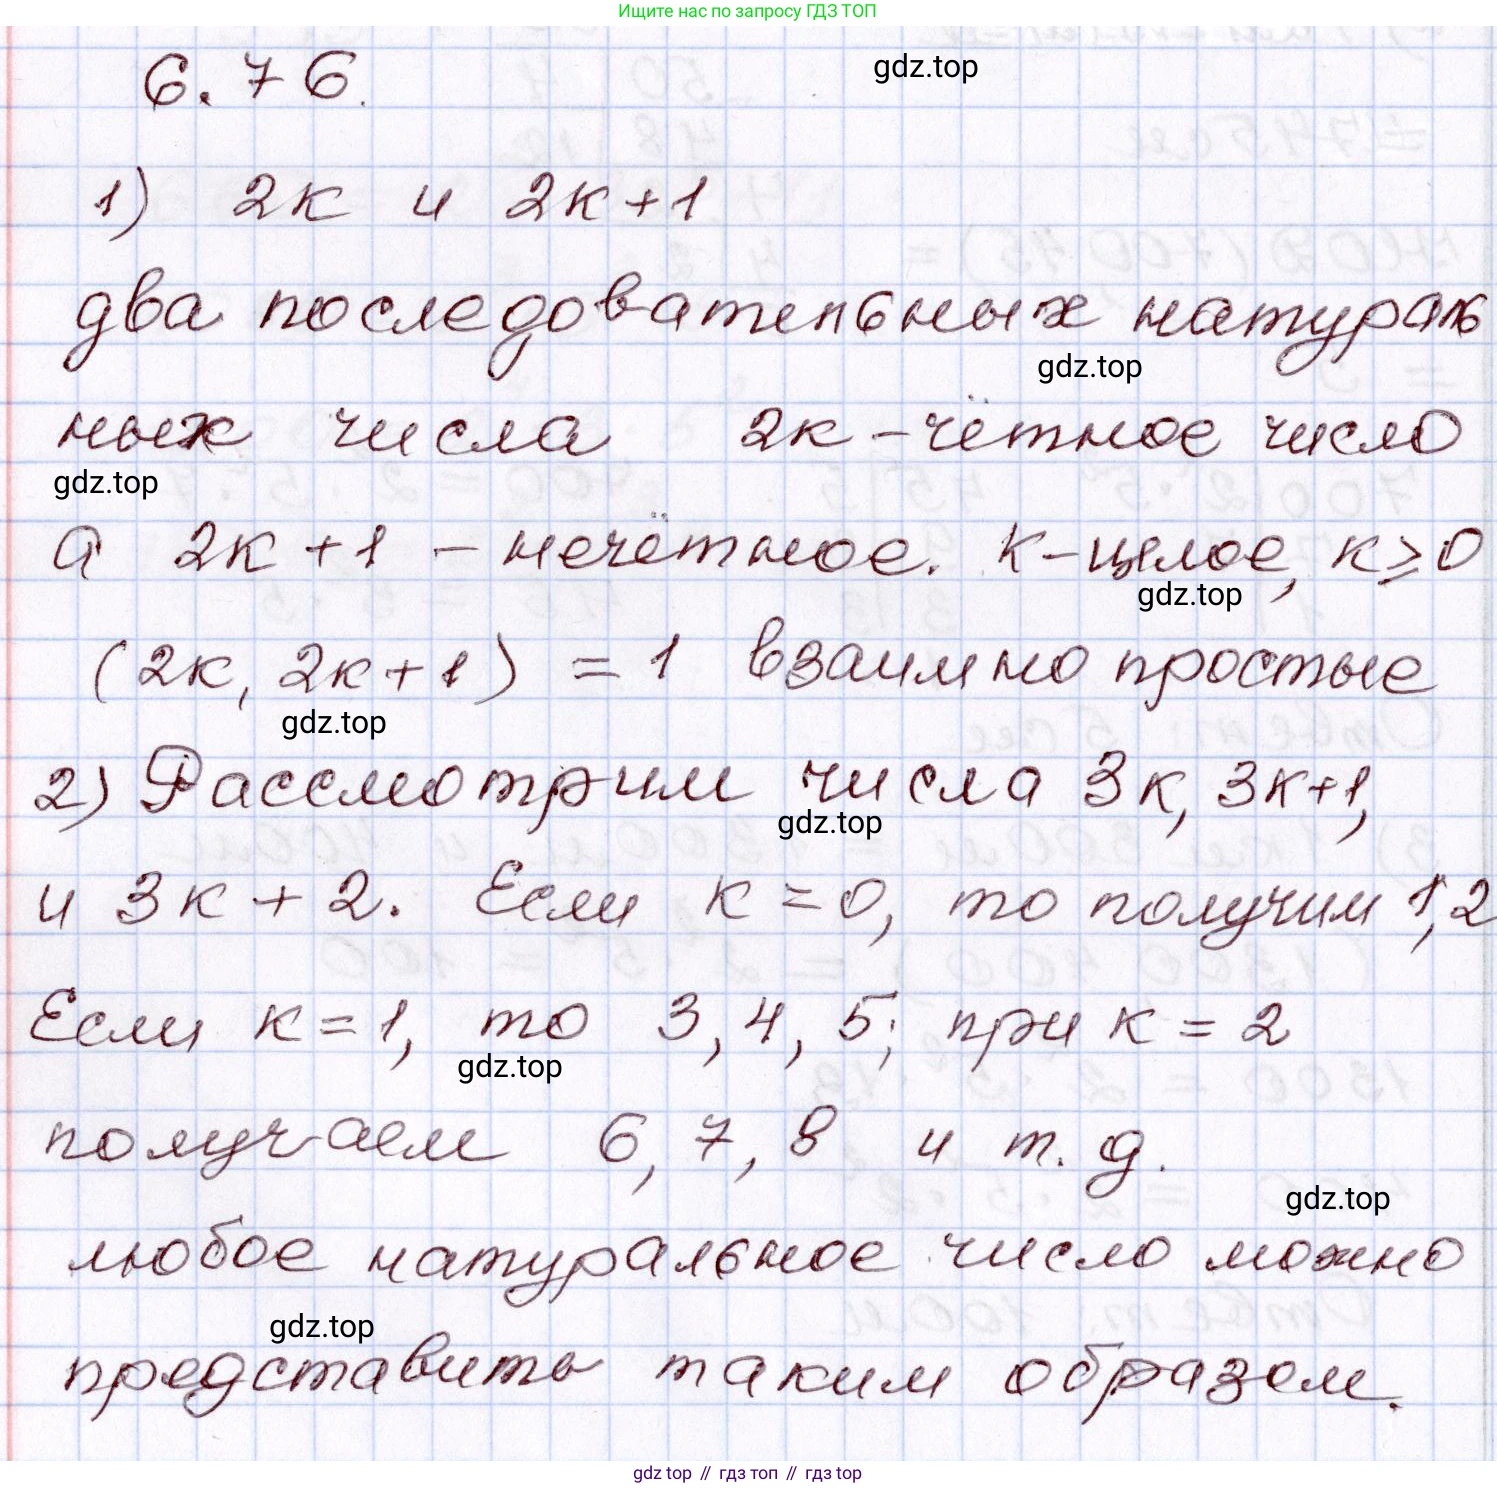 Ищите нас по запросу ГДЗ ТОП
6.76.
gdz.top
1) 2к и 2к+1
два последовательных натураль
gdz.top
ных числа 2к – чётное число
gdz.top
а 2к + 1 – нечётное. к – целое, к ≥ 0
gdz.top
(2к, 2к+1) = 1 взаимно простые
gdz.top
2) Рассмотрим числа 3к, 3к+1,
gdz.top
и 3к + 2. Если к = 0, то получим 1, 2
Если к = 1, то 3, 4, 5; при к = 2
gdz.top
получаем 6, 7, 8 и т. д.
gdz.top
любое натуральное число можно
gdz.top
представить таким образом.
gdz top // гдз топ // гдз top